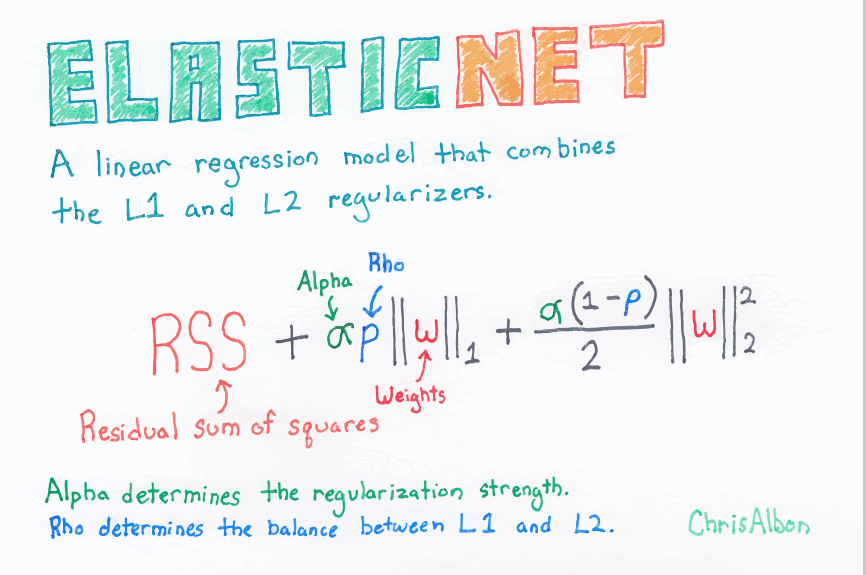 ELASTICNET
A linear regression model that combines
the L1 and L2 regularizers.
Rho
Alpha
RSS + αρ||w||₁ + α(1-ρ)/2 ||w||₂²
Weights
Residual sum of squares
Alpha determines the regularization strength.
Rho determines the balance between L1 and L2.
ChrisAlbon